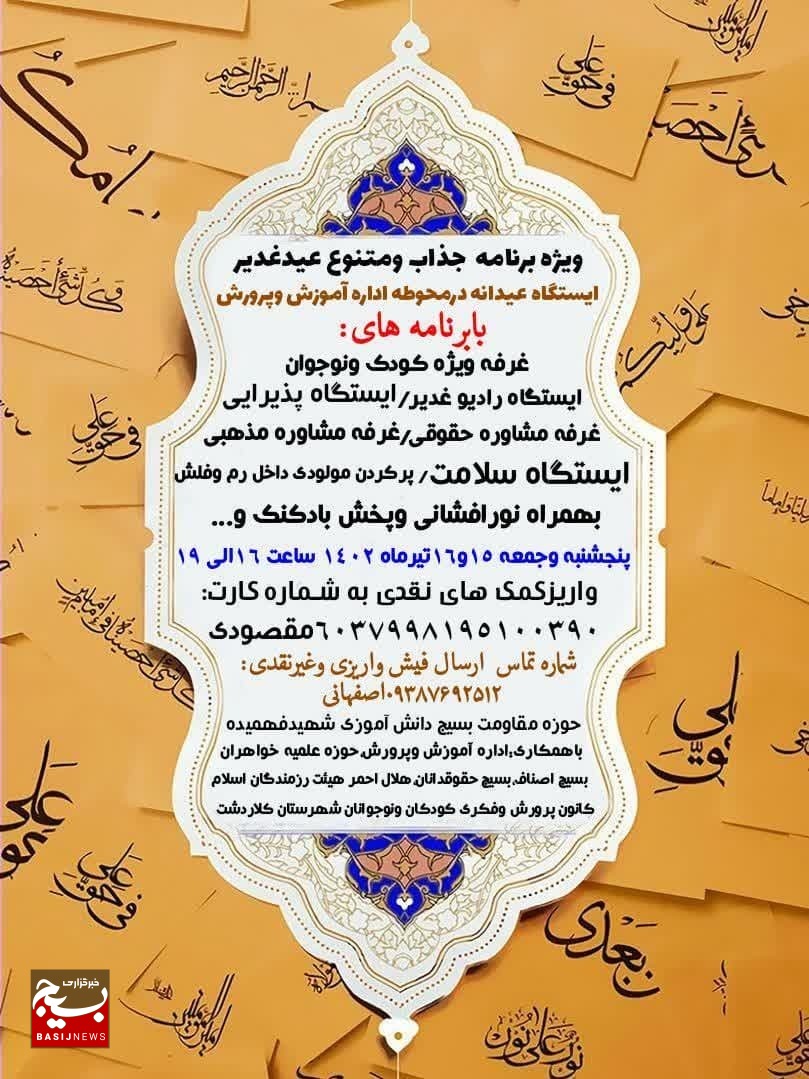 ویژه برنامه جذاب ومتنوع عیدغدیر
ایستگاه عیدانه درمحوطه اداره آموزش وپرورش
بابرنامه های:
غرفه ویژه کودک ونوجوان
ایستگاه رادیو غدیر/ایستگاه پذیرایی
غرفه مشاوره حقوقی/غرفه مشاوره مذهبی
ایستگاه سلامت/ پرکردن مولودی داخل رم وفلش
بهمراه نورافشانی وپخش بادکنک و...
پنجشنبه وجمعه ۱۵و۱۶تیرماه ۱۴۰۲ ساعت ۱۶الی ۱۹
واریزکمک های نقدی به شماره کارت:
۶۰۳۷۹۹۸۱۹۵۱۰۰۳۹۰مقصودی
شماره تماس ارسال فیش واریزی وغیرنقدی:
۰۹۳۸۷۶۹۲۵۱۲اصفهانی
حوزه مقاومت بسیج دانش آموزی شهیدفهمیده
باهمکاری:اداره آموزش وپرورش،حوزه علمیه خواهران
بسیج اصناف،بسیج حقوقدانان،هلال احمر هیئت رزمندگان اسلام
کانون پرورش وفکری کودکان ونوجوانان شهرستان کلاردشت
امیرالمومنین
فی حق علی
بسم الله الرحمن الرحیم
وکل شیء احصیناه
فی حق علی
علی ولیکم
فی حق علی
بعدی
نور علی نور
امیرالمومنین
خبرگزاری
بسیج
BASIJNEWS